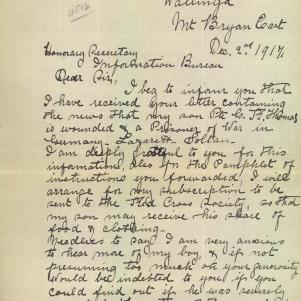 Wallinga
Mt Bryan East
Dec. 2nd 1917.
Honorary Secretary
Information Bureau
Dear Sir,
I beg to inform you that
I have received your letter containing
the news that my son Pte G. F. Thomas
is wounded & a Prisoner of War in
Germany - Lazarett
I am deeply grateful to you for this
information, also for the Pamphlet of
instructions you forwarded, I will
arrange for my subscription to be
sent to the Red Cross Society, so that
my son may receive his share of
food & clothing.
Needless to say I am very anxious
to hear more of my boy, & if not
presuming too much on your generosity
would be indebted to you if you
could find out if he was severely